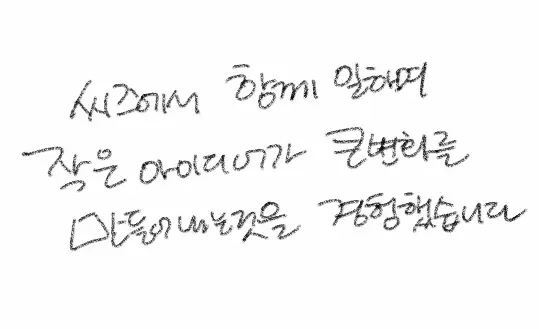 씨즈에서 함께 일하며
작은 아이디어가 큰변화를
만들어내는것을 경험했습니다